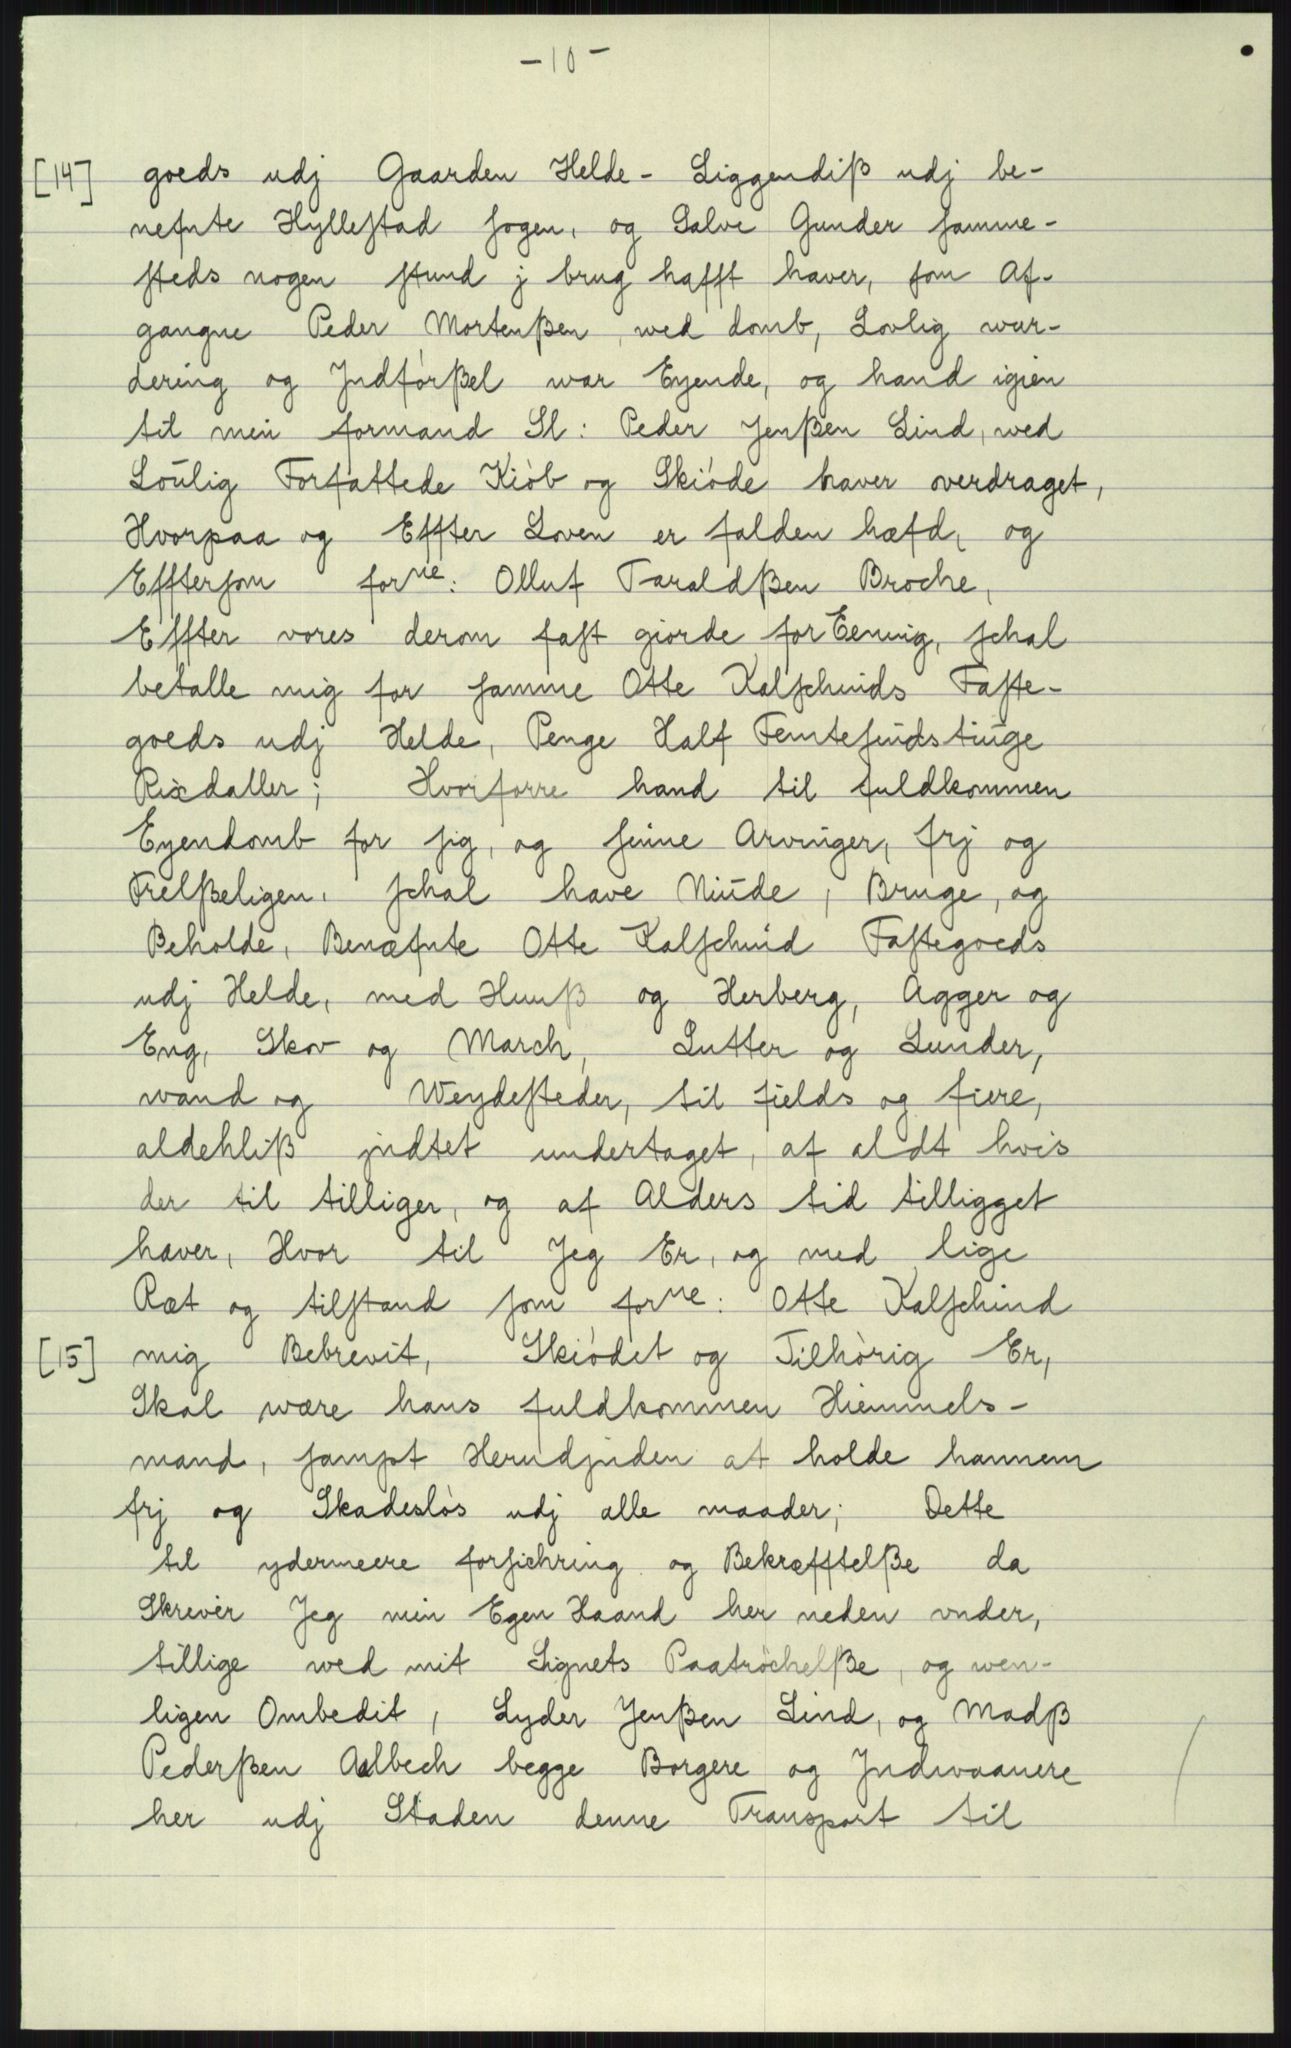 -10-
[14] goeds udj Gaarden Helde - Liggendiß udj be-
nefnte Hyllestad sogen, og Salve Gunder samme-
steds nogen stund j brug hafft haver, som Af-
gangne Peder Mortenßen, wed domb, Lovlig wur-
dering og Jndförßel war Eyende, og hand igien
til min formand Sl: Peder Jenßen Lind, wed
Loũlig Forfattede Kiöb og Skiöde haver overdraget,
Hvorpaa og Effter Loven er falden hæfd, og
Efftersom forne: Olluf Taraldßen Broche,
Effter vores derom fast giorde forEening, schal
betalle mig for samme Otte Kalschinds Faste-
goeds udj Helde, Penge Half Femtesindstiũge
Rixdaller; Hvorforre hand til fuldkommen
Eyendomb for sig, og sinne Arvinger, frj og
Frelßeligen, schal have Niũde, Bruge, og
Beholde, Benæfnte Otte Kalschind Fastegoeds
udj Helde, med Huuß og Herberg, Agger og
Eng, Skov og March, Lutter og Lunder,
wand og Weydesteder, til fields og fiere,
aldehliß jndtet undertaget, af aldt hvis
der til tilliger, og af Alders tid tilligget
haver, Hvor til Jeg Er, og med lige
Ræt og tilstand som forne: Otte Kalschind
[15] mig Bebrevit, Skiödet og Tilhörig Er,
Skal wære hans fuldkommen Hiemmels-
mand, sampt Herudjnden at holde hannem
frj og Skadeslös udj alle maader; Dette
til ydermeere forsichring og Bekræfftelße da
Skrevér Jeg min Egen Haand her neden vnder,
tillige wed mit Signets Paatröchelße, og wen-
ligen Ombedit, Lyder Jenßen Lind, og Madß
Pederßen Aalbech begge Borgere og Jndwaanere
her udj Staden denne Transport til